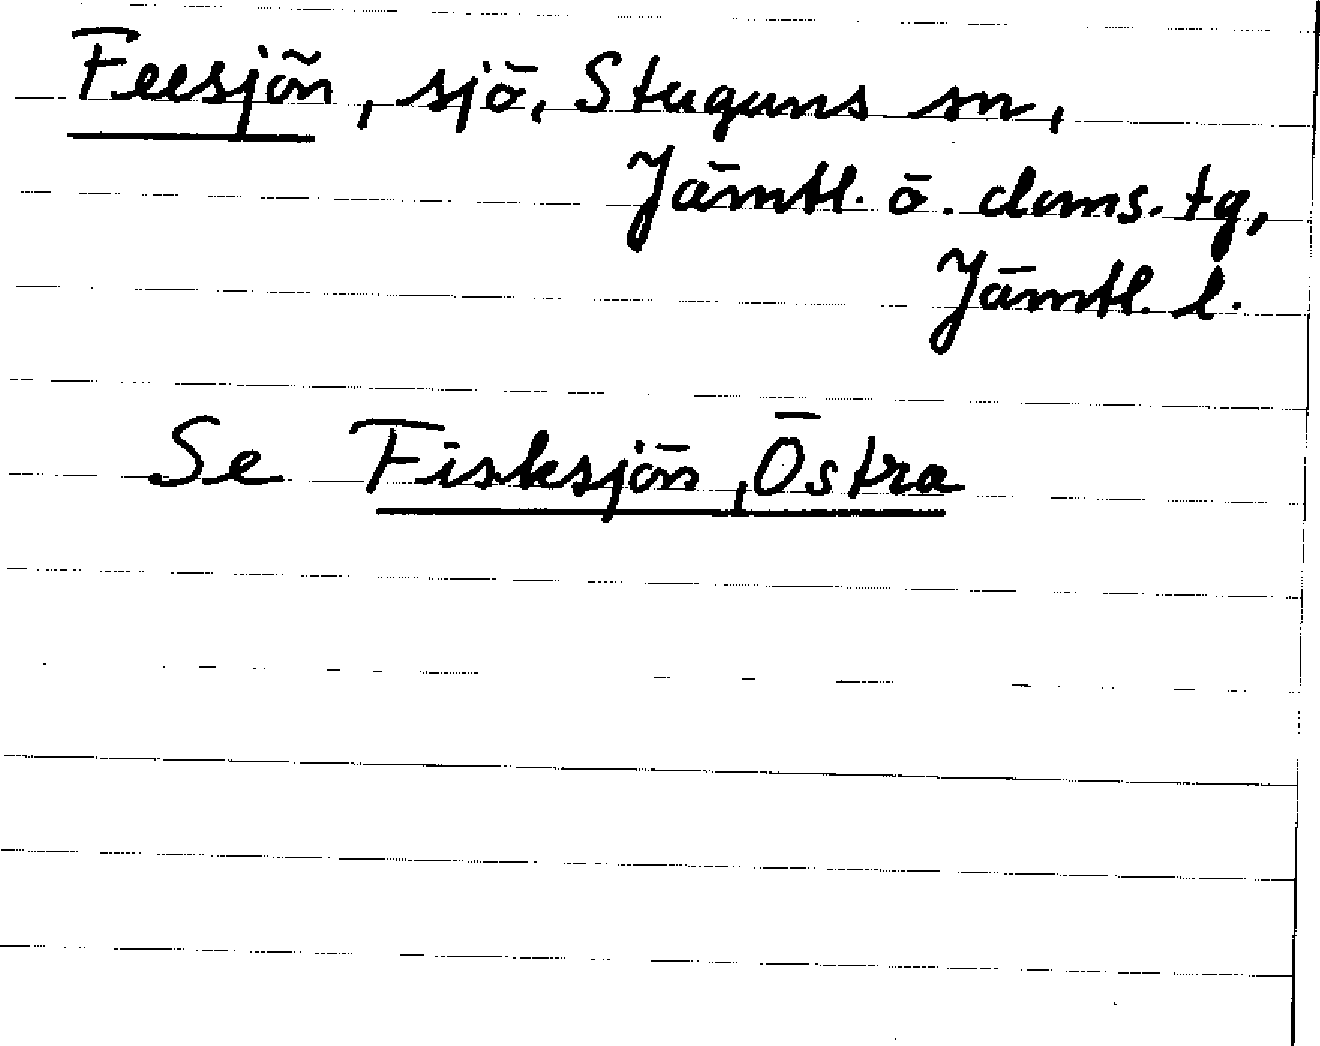 Feesjön, sjö, Stuguns sn,
Jämtl. ö. doms. tg,
Jämtl. l.
Se Fisksjön, Östra